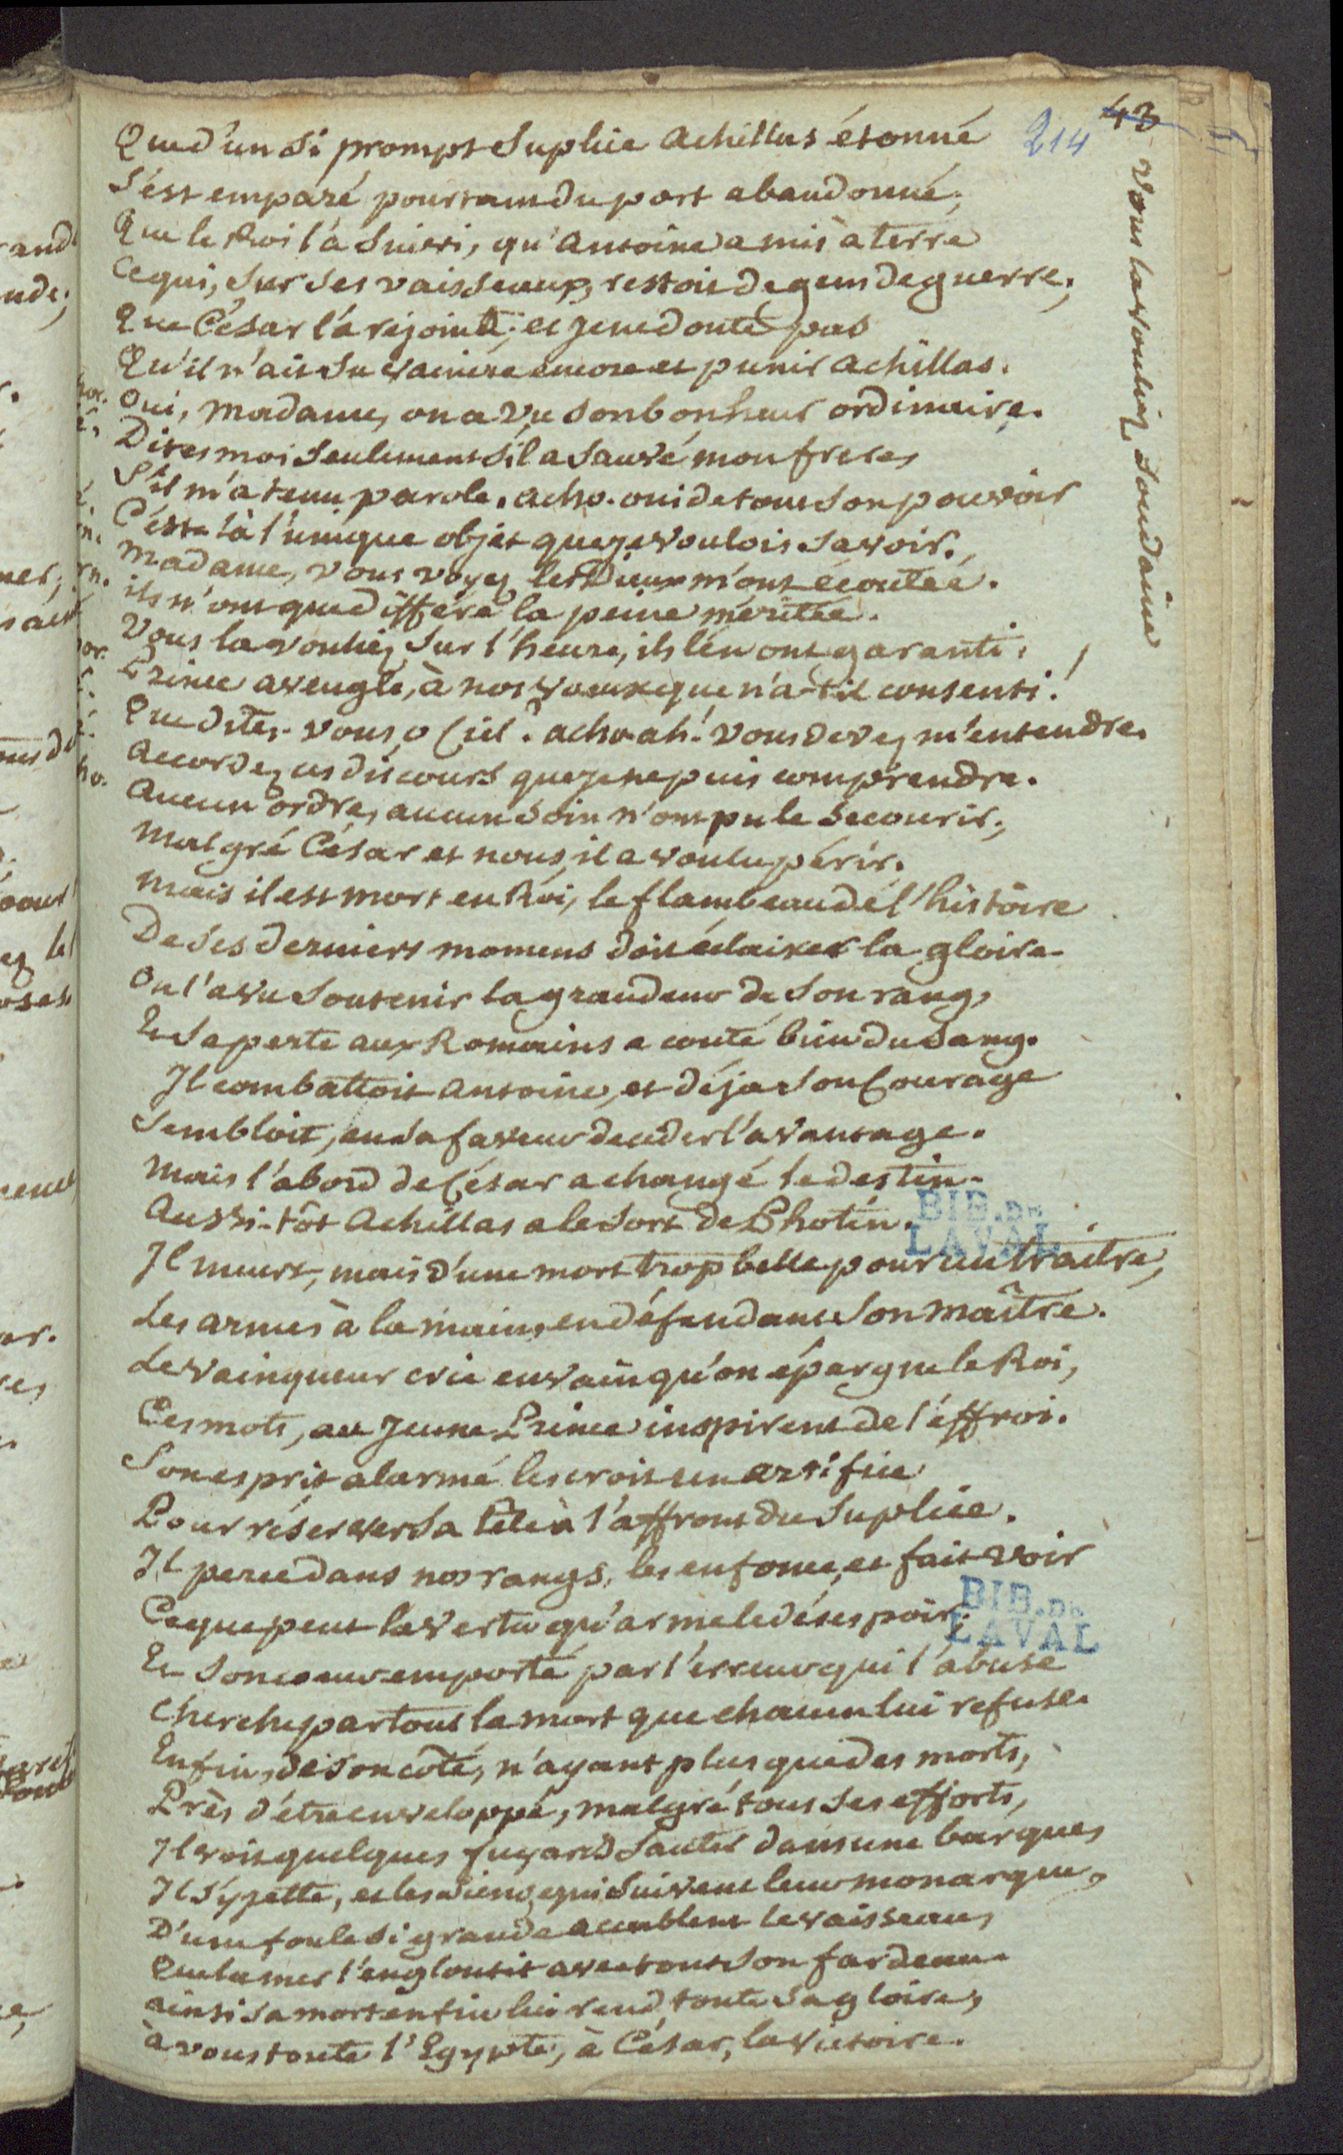 43
214
Que d'un si prompt Suplice Achillas étonné
S'est emparé pourtant du port abandonné,
Que le Roi l'a Suivi, qu'Antoine a mis à terre
Ce qui, Sur Ses vaisseaux, restoit de gens de guerre,
Que César l'a rejoint; et je ne doute pas
Qu'il n'ait Su vaincre encore et punir Achillas.
Oui, Madame, on a vu Son bonheur ordinaire.
Dites moi Seulement S'il a Sauvé mon frere,
S'il m'a tenu parole. acho. oui de tout Son pouvoir
C'est là l'unique objet que je voulois Savoir.
Madame, vous voyez, les Dieux m'ont écoutée.
ils n'ont que différé la peine méritée.
Vous la vouliez Sur l'heure, ils l'en ont garanti.
Prince aveugle, à nos voeux que n'a-t-il consenti!
Que dites-vous, o Ciel. acho. ah! vous devez m'entendre.
Accordez ces discours que je ne puis comprendre.
Aucun ordre, aucun Soin n'ont pu le Secourir;
Malgré César et nous, il a voulu périr.
Mais il est mort en Roi, le flambeau de l'histoire
De Ses derniers momens doit éclairer la gloire.
On l'a vu Soutenir la grandeur de Son rang,
Et Sa perte aux Romains a couté bien du Sang.
Il combattoit Antoine, et déja Son Courage
Sembloit, en Sa faveur decider l'avantage.
Mais l'abord de César a changé le destin.
Aussi-tôt Achillas a le Sort de Photin.
Il meurt, mais d'une mort trop belle pour un traitre,
Les armes à la main, en défendant Son Maître.
Le vainqueur crie en vain qu'on épargne le Roi,
Ces mots, au Jeune Prince inspirent de l'effroi.
Son esprit alarmé les croit un artifice
Pour réserver Sa tête à l'affront du Suplice.
Il perce dans nos rangs, les enfonce, et fait voir
Ce que peut la vertu qu'arme le désespoir,
Et Son coeur emporté par l'erreur qui l'abuse
Cherche partout la mort que chacun lui refuse.
Enfin, de Son côté, n'ayant plus que des morts,
Près d'être enveloppé, malgré tous Ses efforts,
Il voit quelques fuyards Sauter dans une barque,
Il S'y jette, et les Siens, qui Suivent leur monarque,
D'une foule Si grande accablent le vaisseau,
Que la mer l'engloutit avec tout Son fardeau.
ainsi Sa mort enfin lui rend toute Sa gloire,
à vous toute l'Egypte, à César, la victoire.
Vous la vouliez Soudaine
BIB. DE
LAVAL
BIB. DE
LAVAL